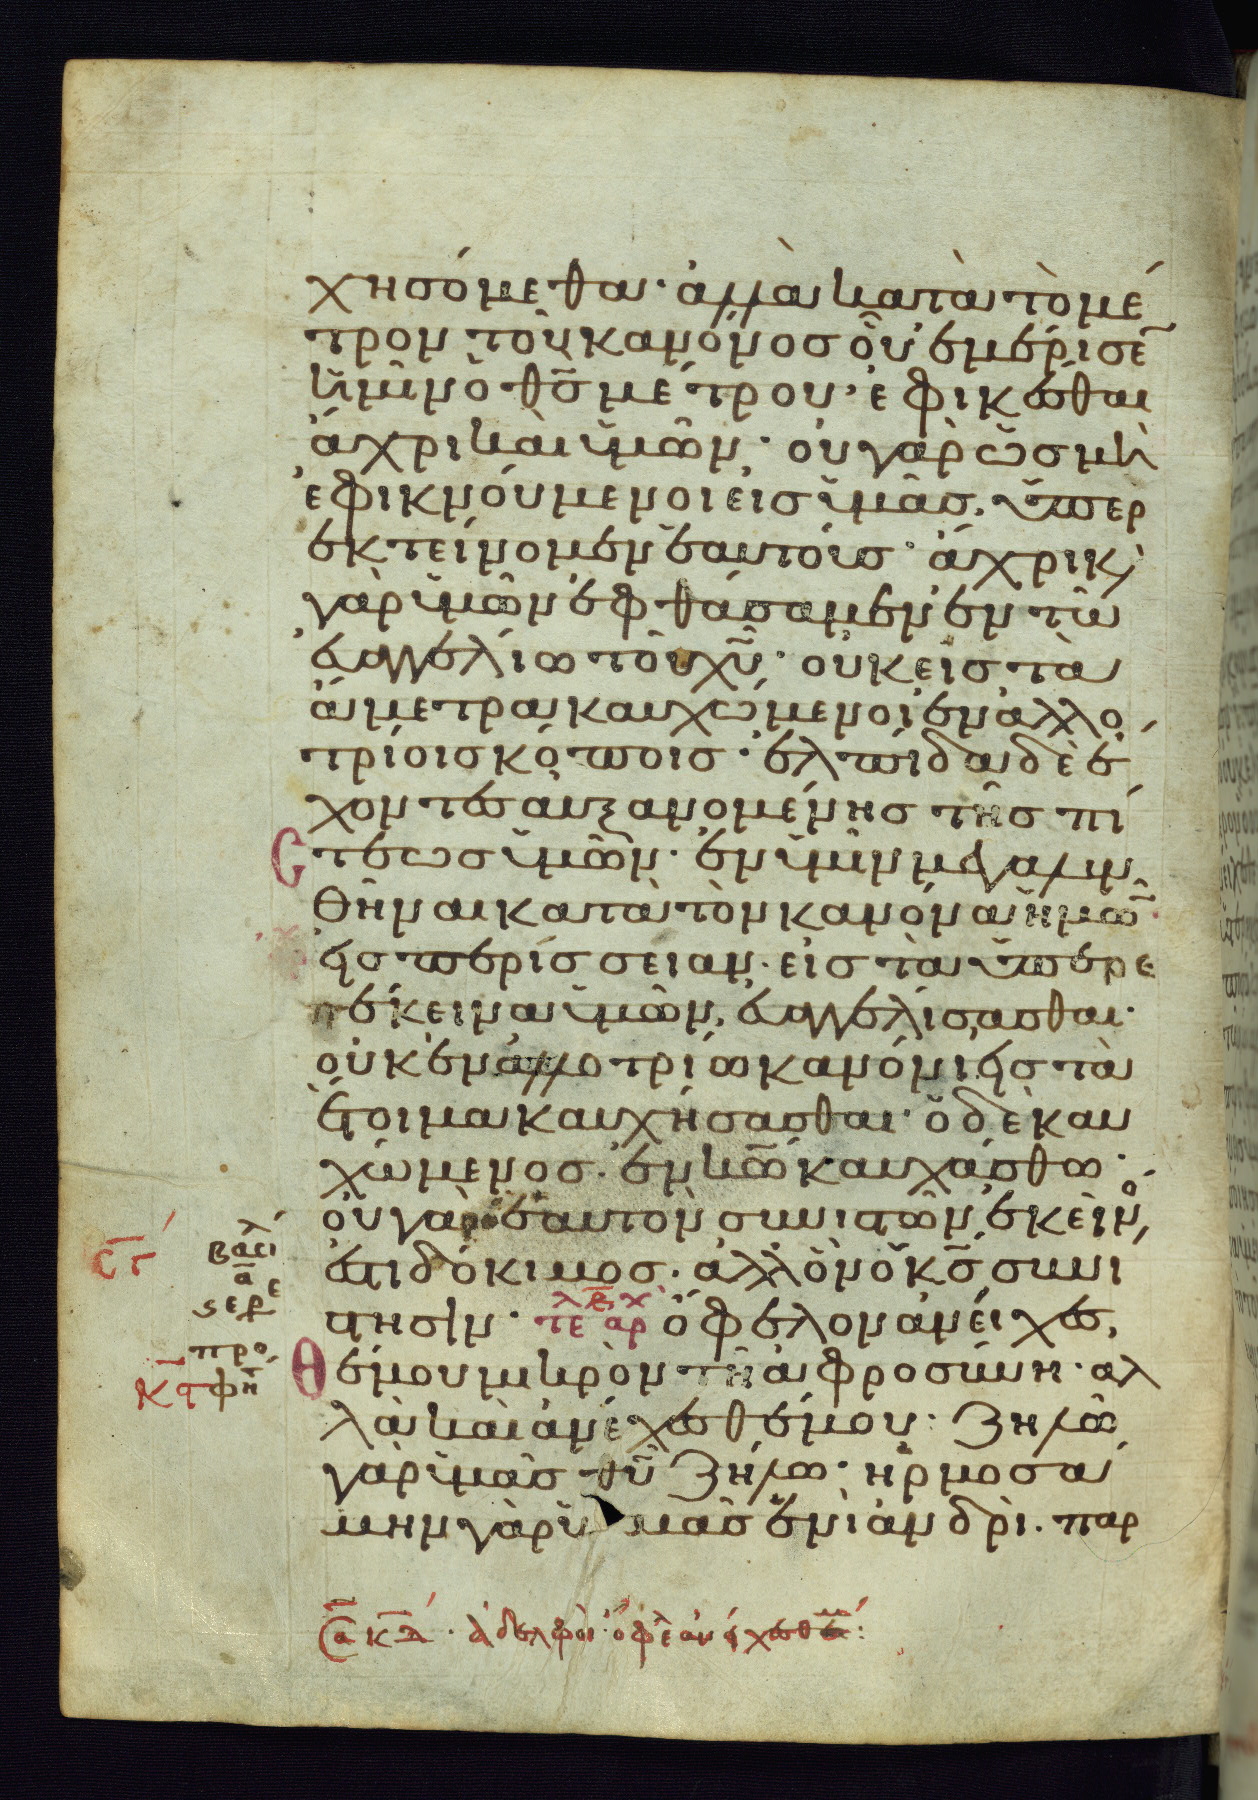 χησόμεθα· ἀλλὰ κατὰ τὸ μέ
τρον τοῦ κανόνος οὗ ἐμέρισε̅
ἡμῖν ὁ θ̅ς̅ μέτρου· ἐφικέσθαι
ἄχρι καὶ ὑμῶν· οὐ γὰρ ὡς μὴ
ἐφικνούμενοι εἰς ὑμᾶς. ὑπερ
εκτείνομεν ἑαυτούς· ἄχρι κ̀
γὰρ ὑμῶν ἐφθάσαμεν ἐν τῶ
εὐαγγελίω τοῦ χ̅υ̅· οὐκ εἰς τὰ
ἄμετρα καυχώμενοι ἐν ἀλλο
τρίοις κόποις· ἐλπίδα δὲ ἔ
χοντες αὐξανομένης τῆς πί
στεως ὑμῶν· ἐν ὑμῖν μεγαλυν
θῆναι κατὰ τὸν κανόνα ἡμῶ̅
εἰς περίσσειαν· εἰς τὰ ὑπερε
πέκεινα ὑμῶν, εὐαγγελίσασθαι·
οὐκ ἐν ἀλλοτρίω κανόνι εἰς τὰ
ἕτοιμα καυχήσασθαι· ὁ δὲ καυ
χώμενος· ἐν κ̅ω̅ καυχάσθω·
οὐ γὰρ ὁ ἑαυτὸν συνιστῶν, ἐκεῖνο̅ς
ἐστι δόκιμος. ἀλλ' ὃν ὁ κ̅ς̅ συνί
στησιν· τε αρ ὄφελον ἀνείχεσ
θέ μου μικρὸν τῆ ἀφροσύνη· ἀλ
λὰ καὶ ἀνέχεσθέ μου· ζηλῶ
γὰρ ὑμᾶς θ̅υ̅ ζήλω· ἡρμοσά
μην γὰρ ὑμᾶς ἑνὶ ἀνδρὶ. παρ
Σα κ̅α̅· ἀδελφοὶ ὄφε ἀνείχεσθέ: